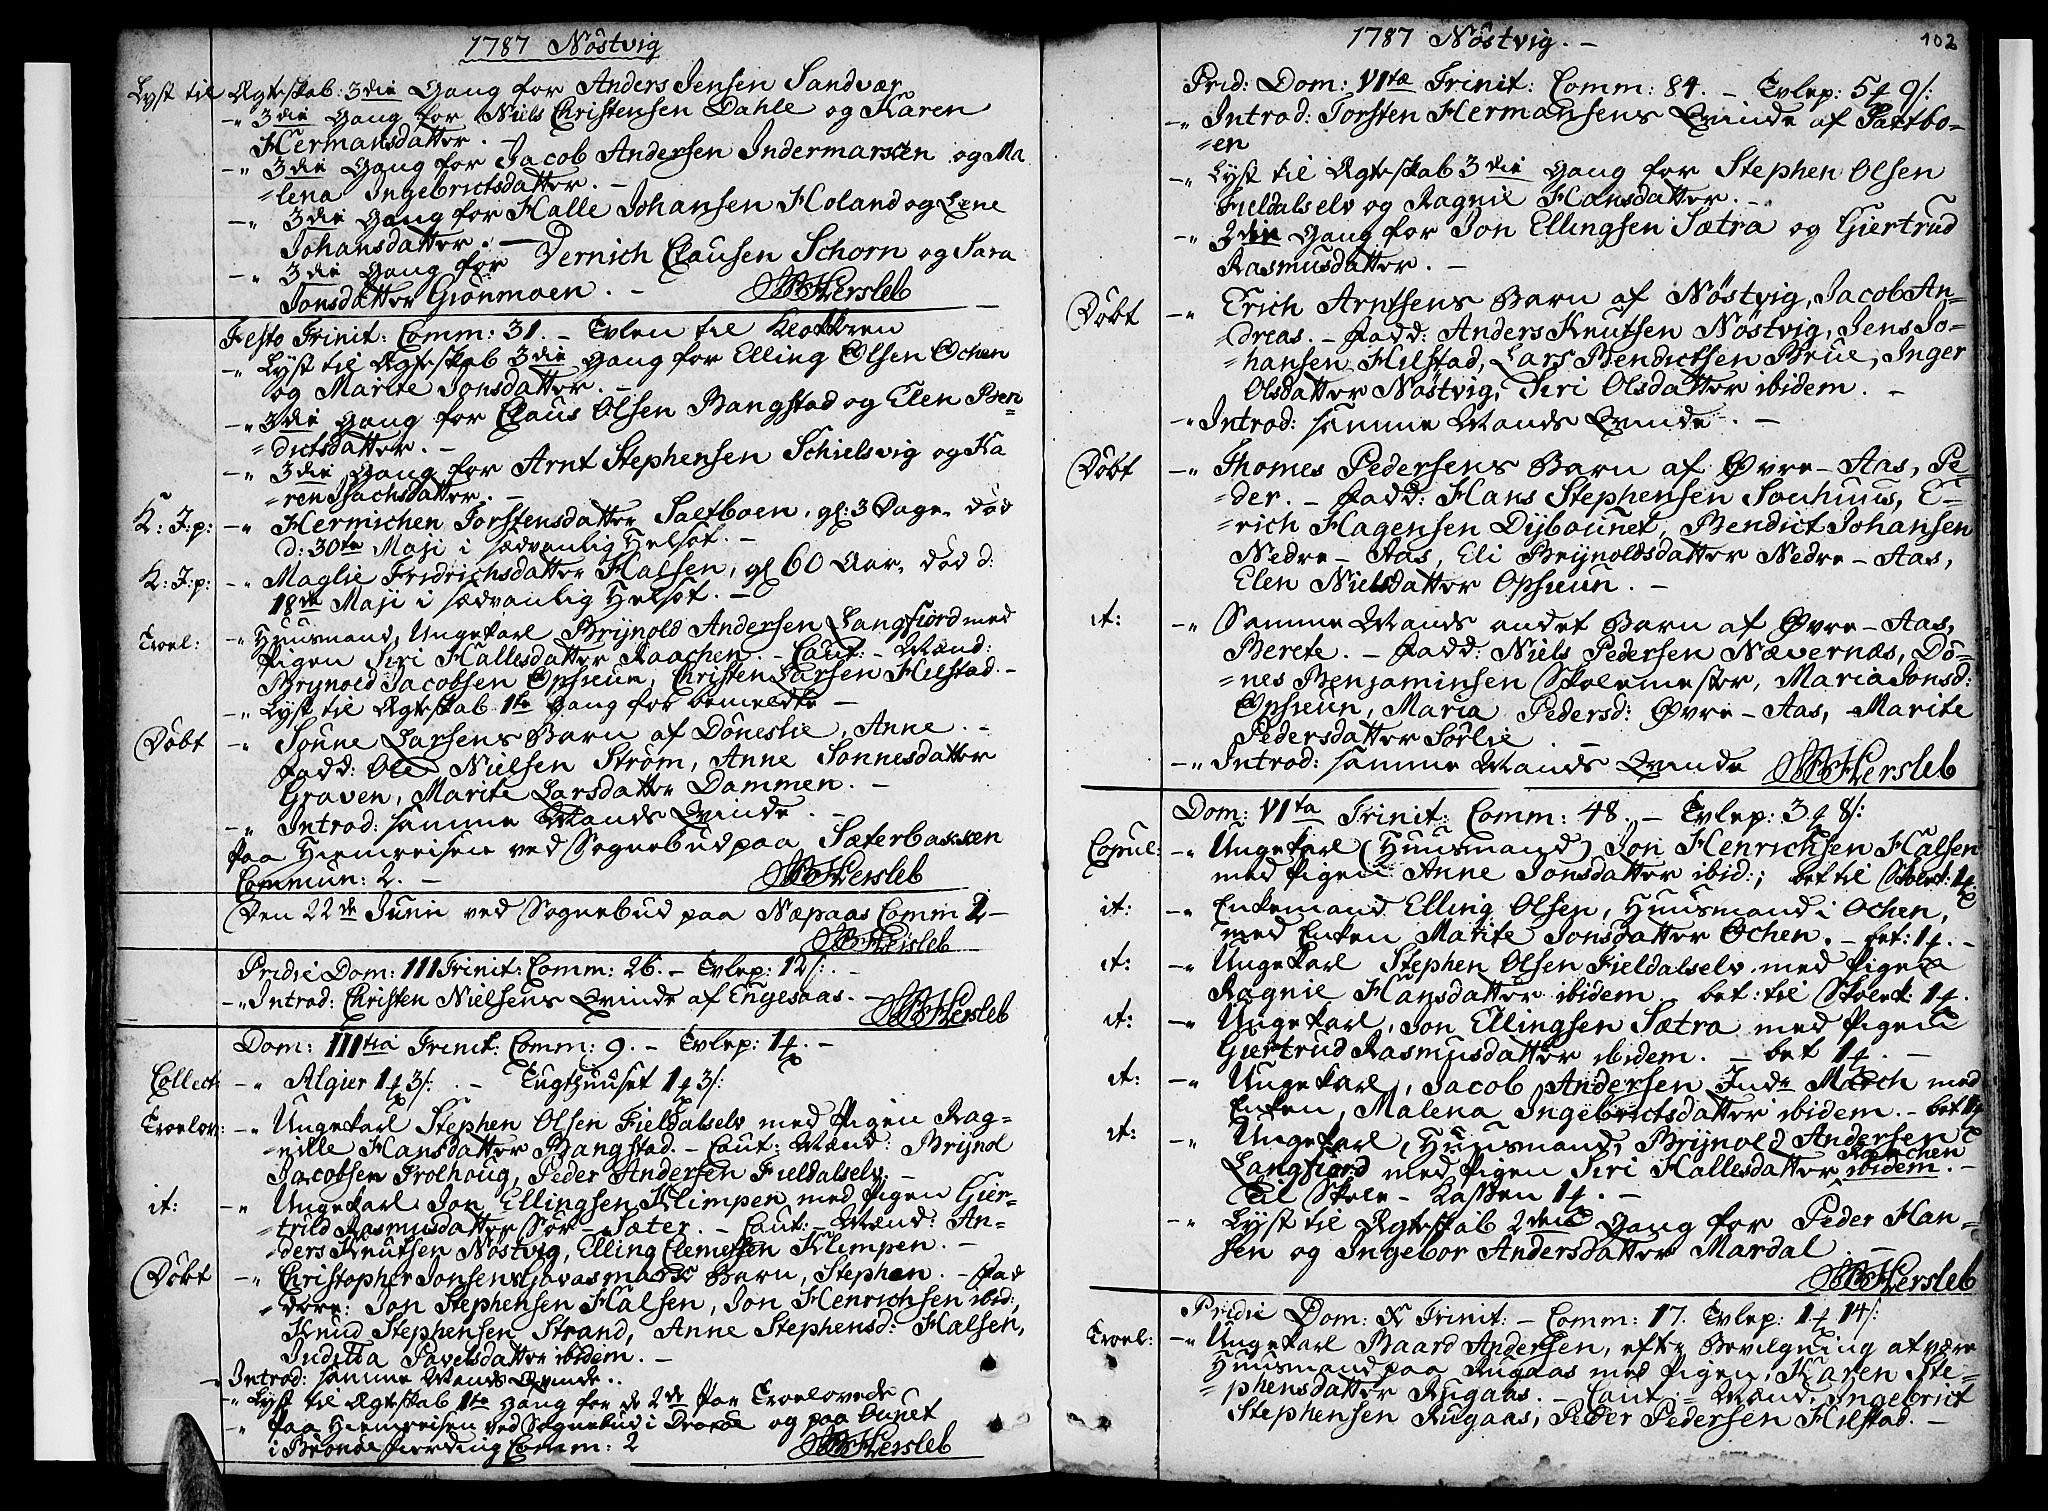 1787 Nöstvig
Lyst til Ægteskab: 3die Gang for Anders Jensen Sandvær
-" 3die Gang for Niels Christensen Dahle og Karen
Hermansdatter. -
-" 3die Gang for Jacob Andersen Indermarken og Ma
=lena Ingebrictsdatter. -
-" 3die Gang for Halle Johansen Holand og Lene
Johansdatter. -
-" 3die Gang for Vernich Clausen Schorn og Sara
Jonsdatter Grönmoen. - HBHersleb
Festo Trinit: Comm: 31. - Tvlen til Klokkren
-" Lyst til Ægteskab 3die Gang for Elling Olsen Ochen
og Marite Jonsdatter. -
-" 3die Gang for Claus Olsen Bangstad og Elen Ben=
=dictsdatter. -
-" 3die Gang for Arnt Stephensen Schielsvig og Ka
=ren Isachsdatter. -
K: J: p: -" Hermichen Torstensdatter Sættboen, gl: 3 Dage, död
d: 30te Maji i sædvanlig Helsot. -
K: J: p: -" Maglie Fridrichsdatter Halsen, gl 60 Aar, död d:
18de Maji i sædvanlig Helsot. -
Troel: -" Huusmand, Ungekarl Brÿnold Andersen Langfiord med
Pigen Siri Hallesdatter Raachen. - Caut: - Mænd:
Brÿnold Jacobsen Opsieün, Christen Larsen Hilstad. -
-" Lyst til Ægteskab 1te Gang for bemeldte -
Döbt -" Sönne Larsens Barn af Döneslie, Anne. -
Fadd: Ole Nielsen Ström, Anne Sönnesdatter
Graven, Marite Larsdatter Dammen. -
-" Introd: samme Mands Qvinde. -
Paa Hiemreisen ved Sognebud paa Sæterbakken
Commun: 2. - HBHersleb
Den 22de Junii ved Sognebud paa Næpaas Comm 2 -
HBHersleb
Pridie Dom: III Trinit: Comm: 26. - Tvlep: 12/: -
-" Introd: Christen Nielsens Qvinde af Engesaas. - HBHersleb
Dom: IIItia Trinit: Comm: 9. - Tvlep: 1 . -
Collect: -" Algier 1 3/: . - Tugthuuset 1 3/:
Troelov: -" Ungekarl Stephen Olsen Fieldalselv med Pigen Rag=
=nille Hansdatter Bangstad. - Caut: Mænd: Brÿnd
Jacobsen Trolhoug, Peder Andersen Fieldalselv. -
it: -" Ungekarl Jon Ellingsen Klimpen med Pigen Gier=
=trud Rasmusdatter Sör - Sæter. - Caut: - Mænd: An=
=ders Knutsen Nöstvig, Elling Clemetsen Klimpen. -
Döbt -" Christopher Jonsens Gavasmark Barn, Stephen. - Fad
=dere: Jon Stephensen Halsen, Jon Henrichsen ibid:,
Knud Stephensen Strand, Anne Stephensd: Halsen,
Juditta Pavelsdatter ibidem. -
-" Introd: samme Mands Qvinde. .
-" Lyst til Ægteskab 1te Gang for de 2de Par Troelovede
-" Paa Hiemreisen ved Sognebud i og paa
i Brönöe fierding Comm: 2 HBHersleb
1787 Nöstvig. -
102
Prid: Dom: VItæ Trinit: Comm: 84. - Tvlep: 5 9/:
-" Introd: Torsten Hermansens Qvinde af Sættbo=
=en
-" Lyst til Ægteskab 3die Gang for Stephen Olsen
Fieldalselv og Ragnil Hansdatter. -
-" 3die Gang for Jon Ellingsen Sætra og Giertrud
Rasmusdatter. -
Döbt -" Erich Arntsens Barn af Nöstvig, Jacob An=
=dreas. - Fadd: Anders Knutsen Nöstvig, Jens Jo=
=hansen Hilstad, Lars Bendictsen Brue, Inger
Olsdatter Nöstvig, Siri Olsdatter ibidem. -
-" Introd: samme Mands Qvinde. -
Döbt -" Thomes Pedersens Barn af Øvre - Aas, Pe=
=der. - Fadd: Hans Stephensen Souhuus, E=
=rich Hagensen Dÿbounet, Bendict Johansen
Nedre - Aas, Eli Brÿnoldsdatter Nedre - Aas,
Elen Nielsdatter Opsieün. -
it: -" Samme Mands andet Barn af Øvre - Aas,
Berete. - Fadd: Niels Pedersen Nævernæs, Dö=
=nes Benjaminsen Skolemester, Maria Jonsd:
Opsieün, Maria Pedersd: Øvre - Aas, Marite
Pedersdatter Sörlie. -
-" Introd: samme Mands Qvinde HBHersleb
Dom: VIta Trinit: Comm: 48. - Tvlep: 3 8/:
Copul: -" Ungekarl (Huusmand) Jon Henrichsen Halsen
med Pigen Anne Jonsdatter ibid:; bet til Skoek: 1
it: -" Enkemand Elling Olsen, Huusmand i Ochen,
med Enken Marite Jonsdatter Ochen. - bet: 1 . -
it: -" Ungekarl Stephen Olsen Fieldalselv med Pigen
Ragnil Hansdatter ibidem. bet: til Skoek: 1 .
it: -" Ungekarl, Jon Ellingsen Sætra med Pigen
Giertrud Rasmusdatter ibidem. - bet 1 . -
it: -" Ungekarl, Jacob Andersen Indr March med
Enken, Malena Ingebrictsdatter ibidem. - bet 1
it: -" Ungekarl, Huusmand, Brÿnold Andersen
Langfiord med Pigen Siri Hallesdatter ibidem. -
Raachen
Til Skole - Kassen 1 . -
-" Lyst til Ægteskab 2den Gang for Peder Han=
sen og Ingebor Andersdatter Mardal. -
HBHersleb
Pridie Dom: X Trinit: - Comm: 17. Tvlep: 1 14/:
Troel: -" Ungekarl Baard Andersen, eftr Bevilgning at være
Huusmand paa Rugaas med Pigen, Karen Ste=
=phensdatter Rugaas. - Caut: = Mænd: Ingebrict
Stephensen Rugaas, Peder Pedersen Hilstad. -